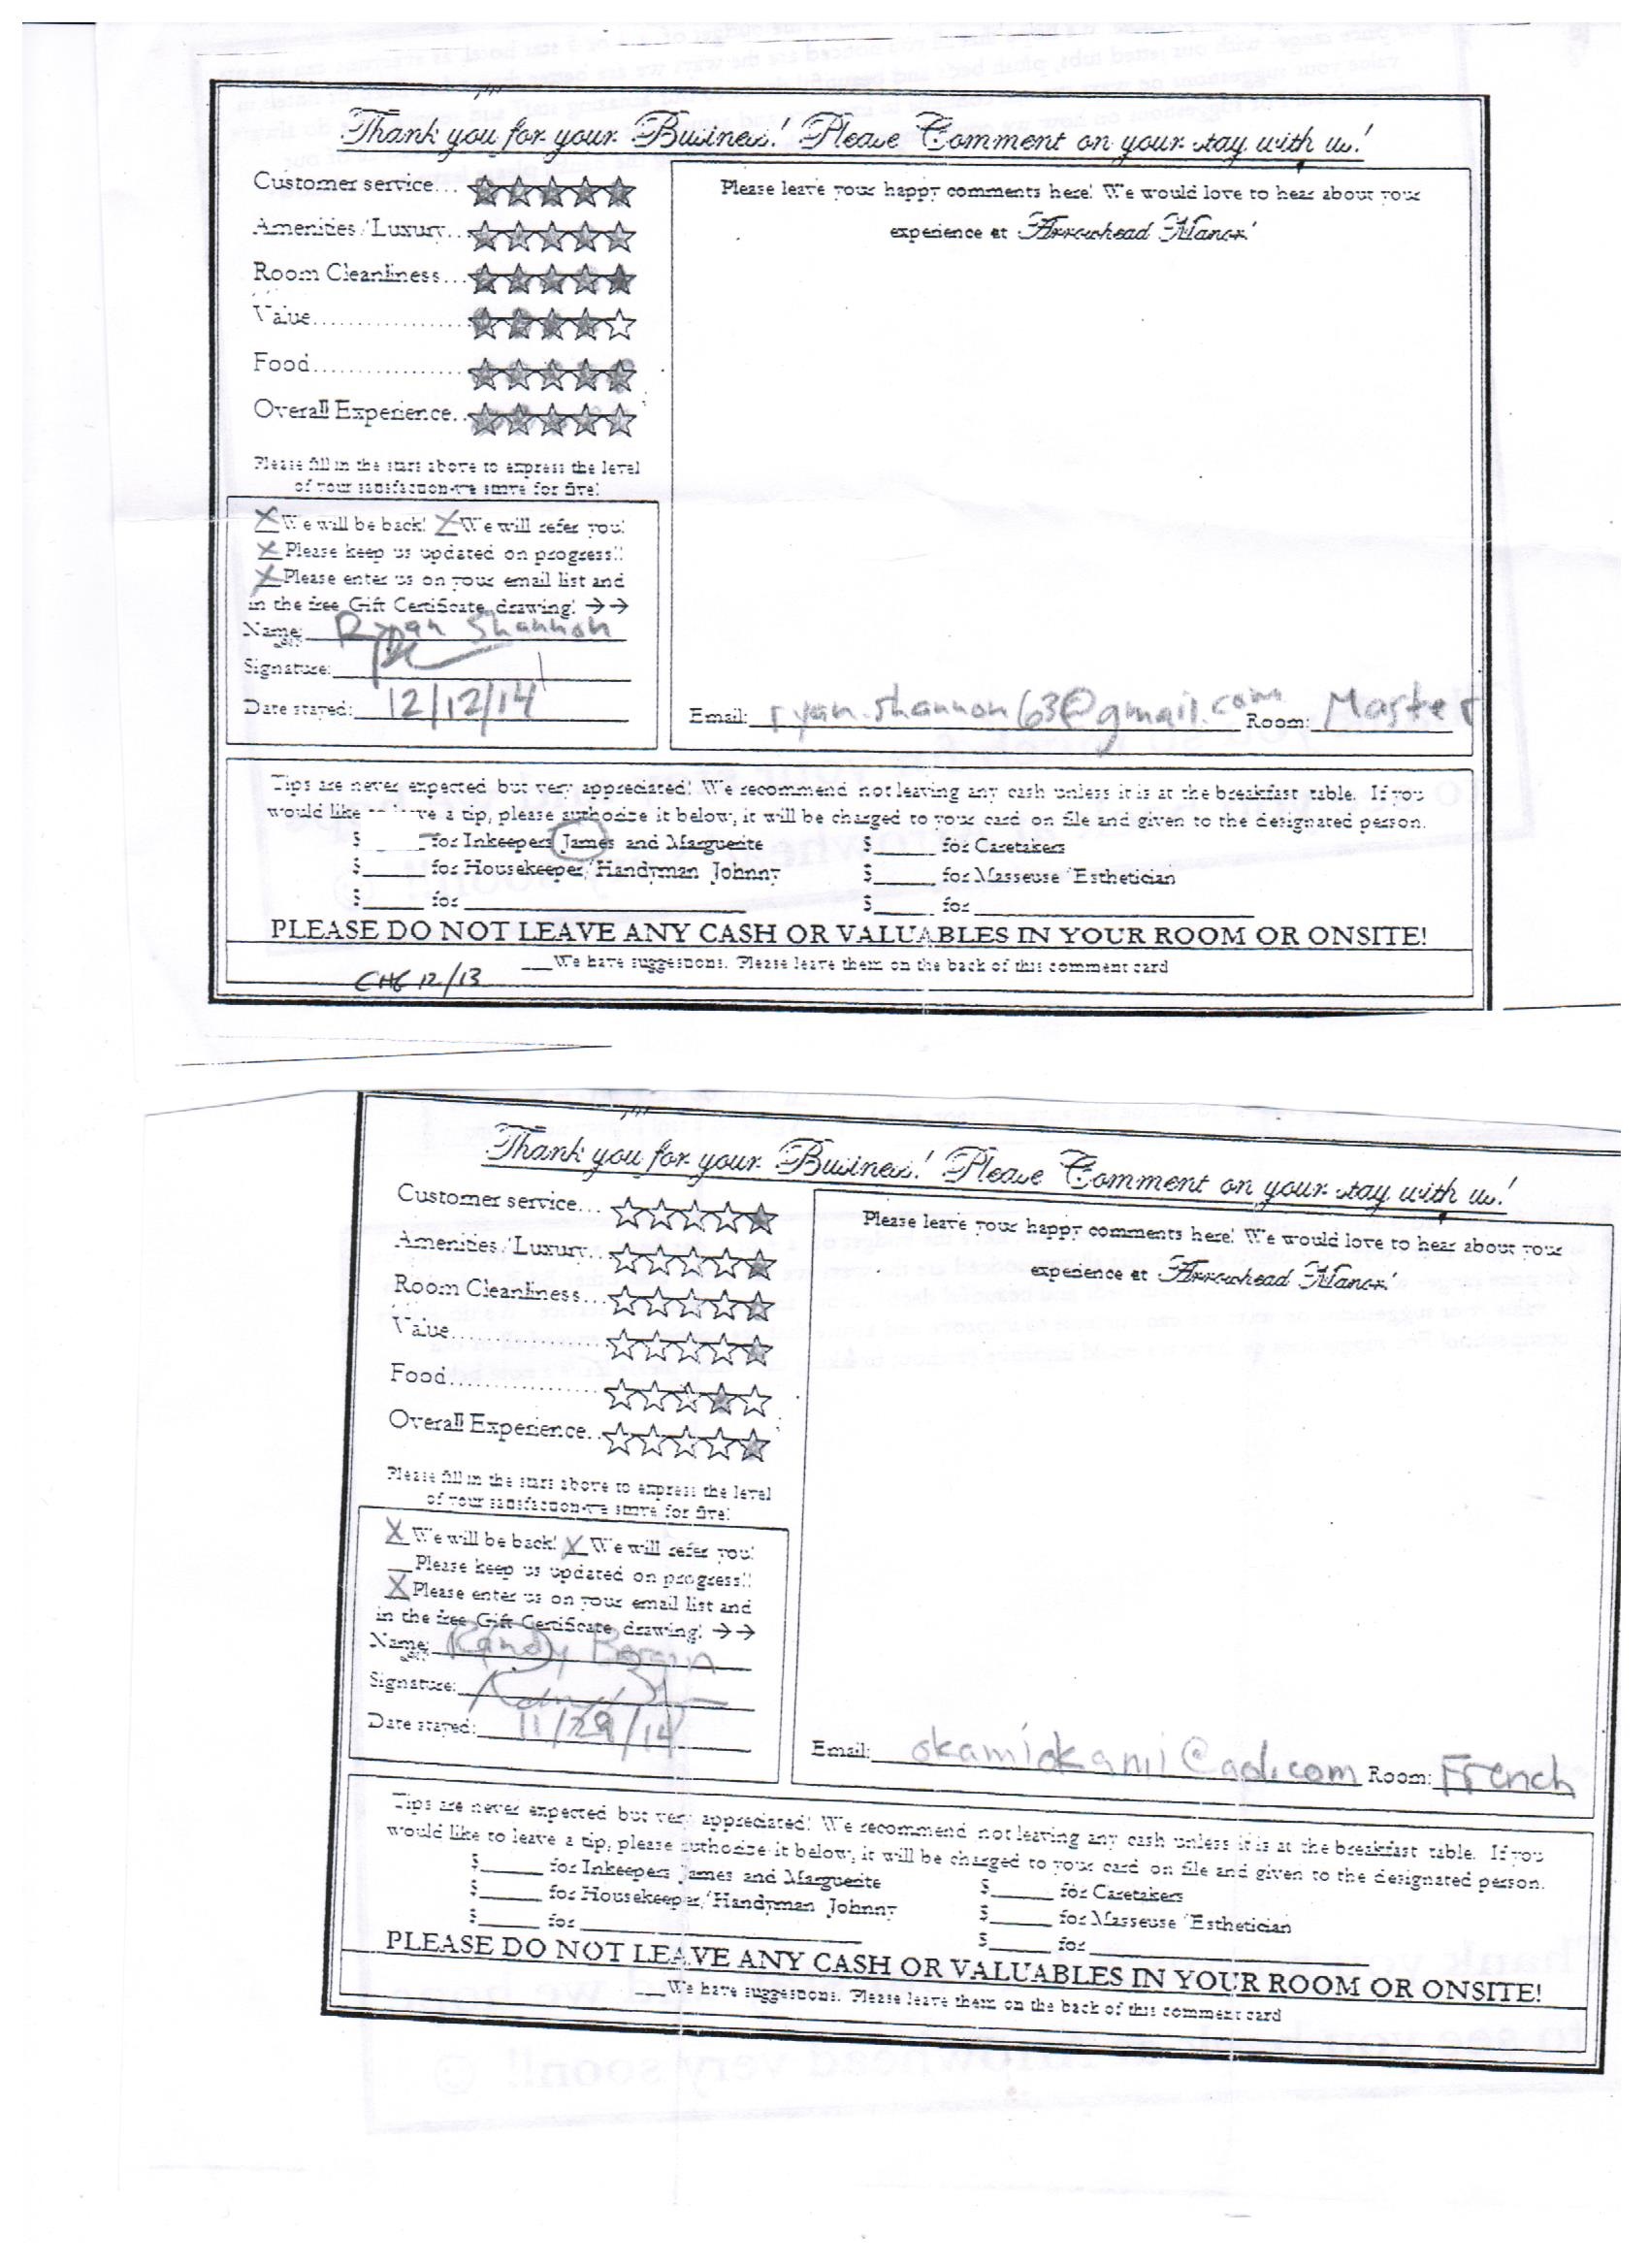 Thank you for your Business! Please Comment on your stay with us!
Customer service...
Amenities/Luxury..
Room Cleanliness...
Value...................
Food..................
Overall Experience..
Please fill in the stars above to express the level
of your satisfaction-we strive for five!
X We will be back! X We will refer you!
X Please keep us updated on progress!!
X Please enter us on your email list and
in the free Gift Certificate drawing! →→
Name: Ryan Shannon
Signature:
Date stayed: 12/12/14
Please leave your happy comments here! We would love to hear about your
experience at Arrowhead Manor!
Email: ryan.shannon63@gmail.com Room: Master
Tips are never expected but very appreciated! We recommend not leaving any cash unless it is at the breakfast table. If you
would like a tip, please authorize it below, it will be charged to your card on file and given to the designated person.
$ ____ for Inkeepers James and Marguerite $____ for Caretakers
$____ for Housekeeper/Handyman Johnny $____ for Masseuse/Esthetician
$____ for ____ $____ for ____
PLEASE DO NOT LEAVE ANY CASH OR VALUABLES IN YOUR ROOM OR ONSITE!
__We have suggestions. Please leave them on the back of this comment card
12/13
Thank you for your Business! Please Comment on your stay with us!
Customer service...
Amenities/Luxury..
Room Cleanliness...
Value...................
Food..................
Overall Experience..
Please fill in the stars above to express the level
of your satisfaction-we strive for five!
X We will be back! X We will refer you!
__Please keep us updated on progress!!
X Please enter us on your email list and
in the free Gift Certificate drawing! →→
Name: Randy
Signature:
Date stayed: 11/29/14
Please leave your happy comments here! We would love to hear about your
experience at Arrowhead Manor!
Email: okamiokami@aol.com Room: French
Tips are never expected but very appreciated! We recommend not leaving any cash unless it is at the breakfast table. If you
would like to leave a tip, please authorize it below, it will be charged to your card on file and given to the designated person.
$____ for Inkeepers James and Marguerite $____ for Caretakers
$____ for Housekeeper/Handyman Johnny $____ for Masseuse/Esthetician
$____ for ____ $____ for ____
PLEASE DO NOT LEAVE ANY CASH OR VALUABLES IN YOUR ROOM OR ONSITE!
__We have suggestions. Please leave them on the back of this comment card